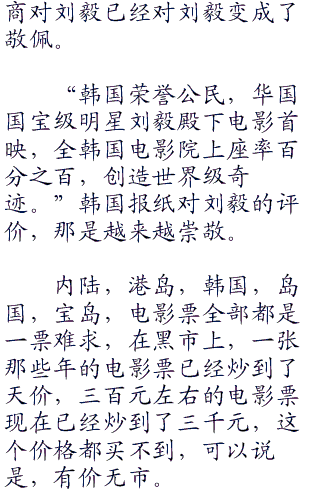 商对刘毅已经对刘毅变成了
敬佩。
“韩国荣誉公民，华国
国宝级明星刘毅殿下电影首
映，全韩国电影院上座率百
分之百，创造世界级奇
迹。”韩国报纸对刘毅的评
价，那是越来越崇敬。
内陆，港岛，韩国，岛
国，宝岛，电影票全部都是
一票难求，在黑市上，一张
那些年的电影票已经炒到了
天价，三百元左右的电影票
现在已经炒到了三千元，这
个价格都买不到，可以说
是，有价无市。